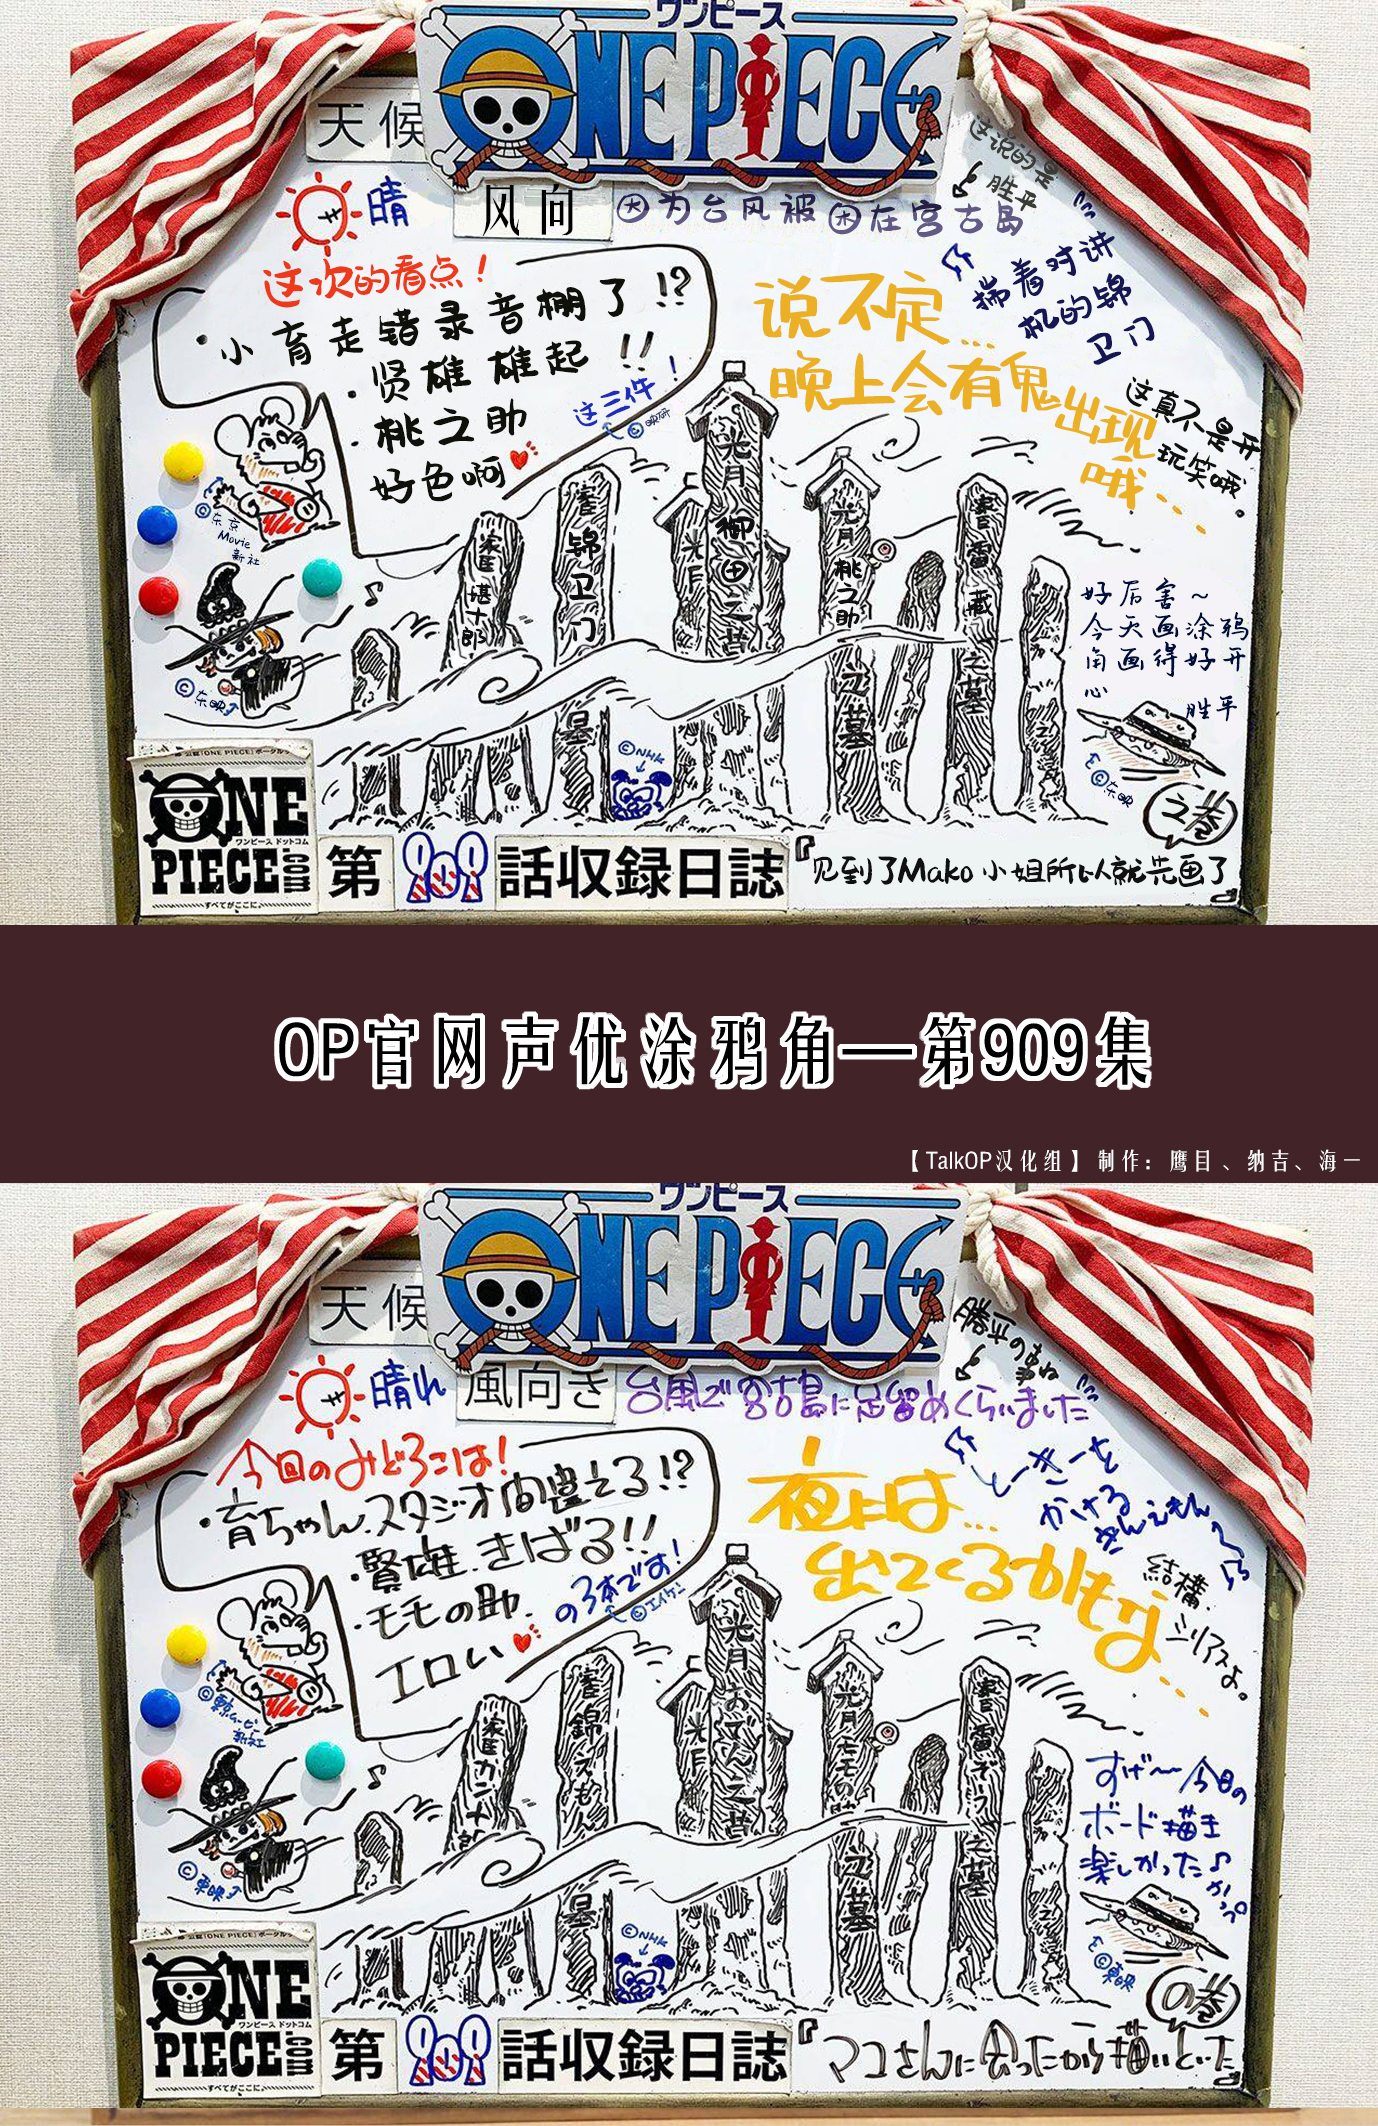 ワンピース
ONE PIECE
天候
晴
风向
因为台风被困在宫古島
这说的是
胜平
揣着对讲
机的锦
卫门
这次的看点！
・小育走错录音棚了!?
・贤雄 雄起!!
・桃之助
好色啊
这三件！
说不定…
晚上会有鬼出现
哦…
这真不是开
玩笑哦。
©东京
Movie
新社
©东映
光月御田之墓
光月桃之助之墓
雷藏之墓
锦卫门
堪十郎
©NHK
好厉害～
今天画涂鸦
角画得好开
心
胜平
©东映
之巻
ONE
ワンピース ドットコム
PIECE.com
すべてがここに。
第909話収録日誌
『见到了Mako小姐所以就先画了』
OP官网声优涂鸦角—第909集
【TalkOP汉化组】制作：鹰目、纳吉、海一
ワンピース
ONE PIECE
天候
晴れ
風向き
台風で宮古島に足留めくらいました
勝平のまね
とーきーを
かける
きんえもん
今回のみどころは！
・育ちゃん、スタジオ間違える!?
・賢雄、きばる!!
・モモの助、
エロい
の3本です！
©エイケン
夜は…
出てくるかもな…
結構、
シリアスよ。
©東京ムービー
新社
©東映
光月おでん之墓
光月モモの助之墓
雷ぞう之墓
錦えもん
カン十郎
©NHK
すげ～今日の
ボード描き
楽しかった♪
かっぺ
©東映
の巻
ONE
ワンピース ドットコム
PIECE.com
すべてがここに。
第909話収録日誌
『マコさんに会ったから描いといた』